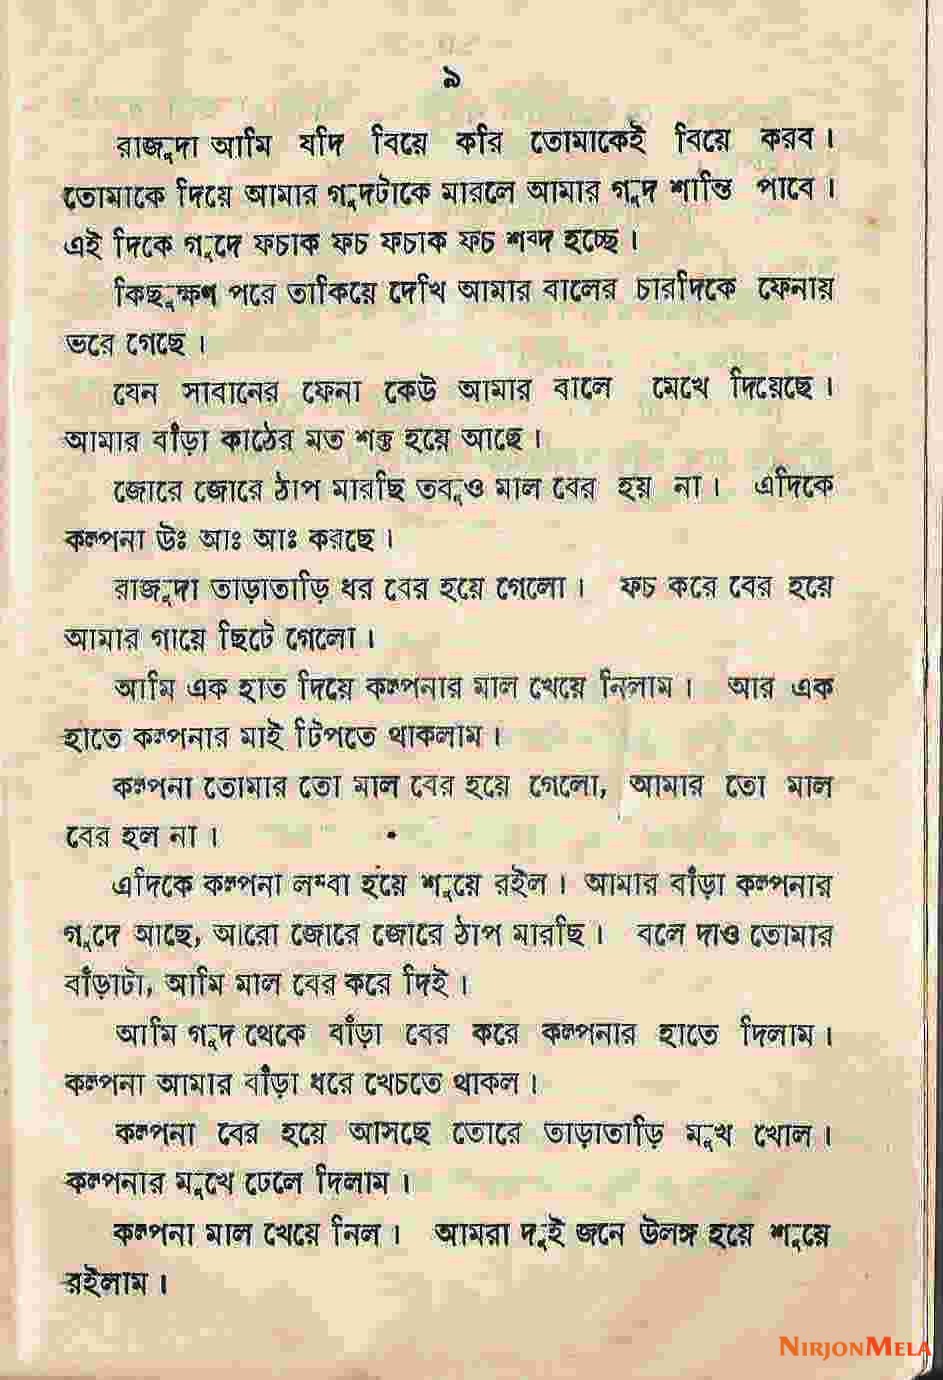 ৯
রাজুদা আমি যদি বিয়ে করি তোমাকেই বিয়ে করব ।
তোমাকে দিয়ে আমার গুদটাকে মারলে আমার গুদ শান্তি পাবে ।
এই দিকে গুদে ফচাক ফচ ফচাক ফচ শব্দ হচ্ছে ।
কিছুক্ষণ পরে তাকিয়ে দেখি আমার বালের চারদিকে ফেনায়
ভরে গেছে ।
যেন সাবানের ফেনা কেউ আমার বালে মেখে দিয়েছে ।
আমার বাঁড়া কাঠের মত শক্ত হয়ে আছে ।
জোরে জোরে ঠাপ মারছি তবুও মাল বের হয় না । এদিকে
কল্পনা উঃ আঃ আঃ করছে ।
রাজুদা তাড়াতাড়ি ধর বের হয়ে গেলো । ফচ করে বের হয়ে
আমার গায়ে ছিটে গেলো ।
আমি এক হাত দিয়ে কল্পনার মাল খেয়ে নিলাম । আর এক
হাতে কল্পনার মাই টিপতে থাকলাম ।
কল্পনা তোমার তো মাল বের হয়ে গেলো, আমার তো মাল
বের হল না ।
এদিকে কল্পনা লম্বা হয়ে শুয়ে রইল । আমার বাঁড়া কল্পনার
গুদে আছে, আরো জোরে জোরে ঠাপ মারছি । বলে দাও তোমার
বাঁড়াটা, আমি মাল বের করে দিই ।
আমি গুদ থেকে বাঁড়া বের করে কল্পনার হাতে দিলাম ।
কল্পনা আমার বাঁড়া ধরে খেচতে থাকল ।
কল্পনা বের হয়ে আসছে তোরে তাড়াতাড়ি মুখ খোল ।
কল্পনার মুখে ঢেলে দিলাম ।
কল্পনা মাল খেয়ে নিল । আমরা দুই জনে উলঙ্গ হয়ে শুয়ে
রইলাম ।
NIRJONMELA